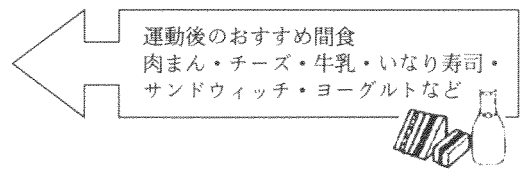 運動後のおすすめ間食
肉まん・チーズ・牛乳・いなり寿司・
サンドウィッチ・ヨーグルトなど